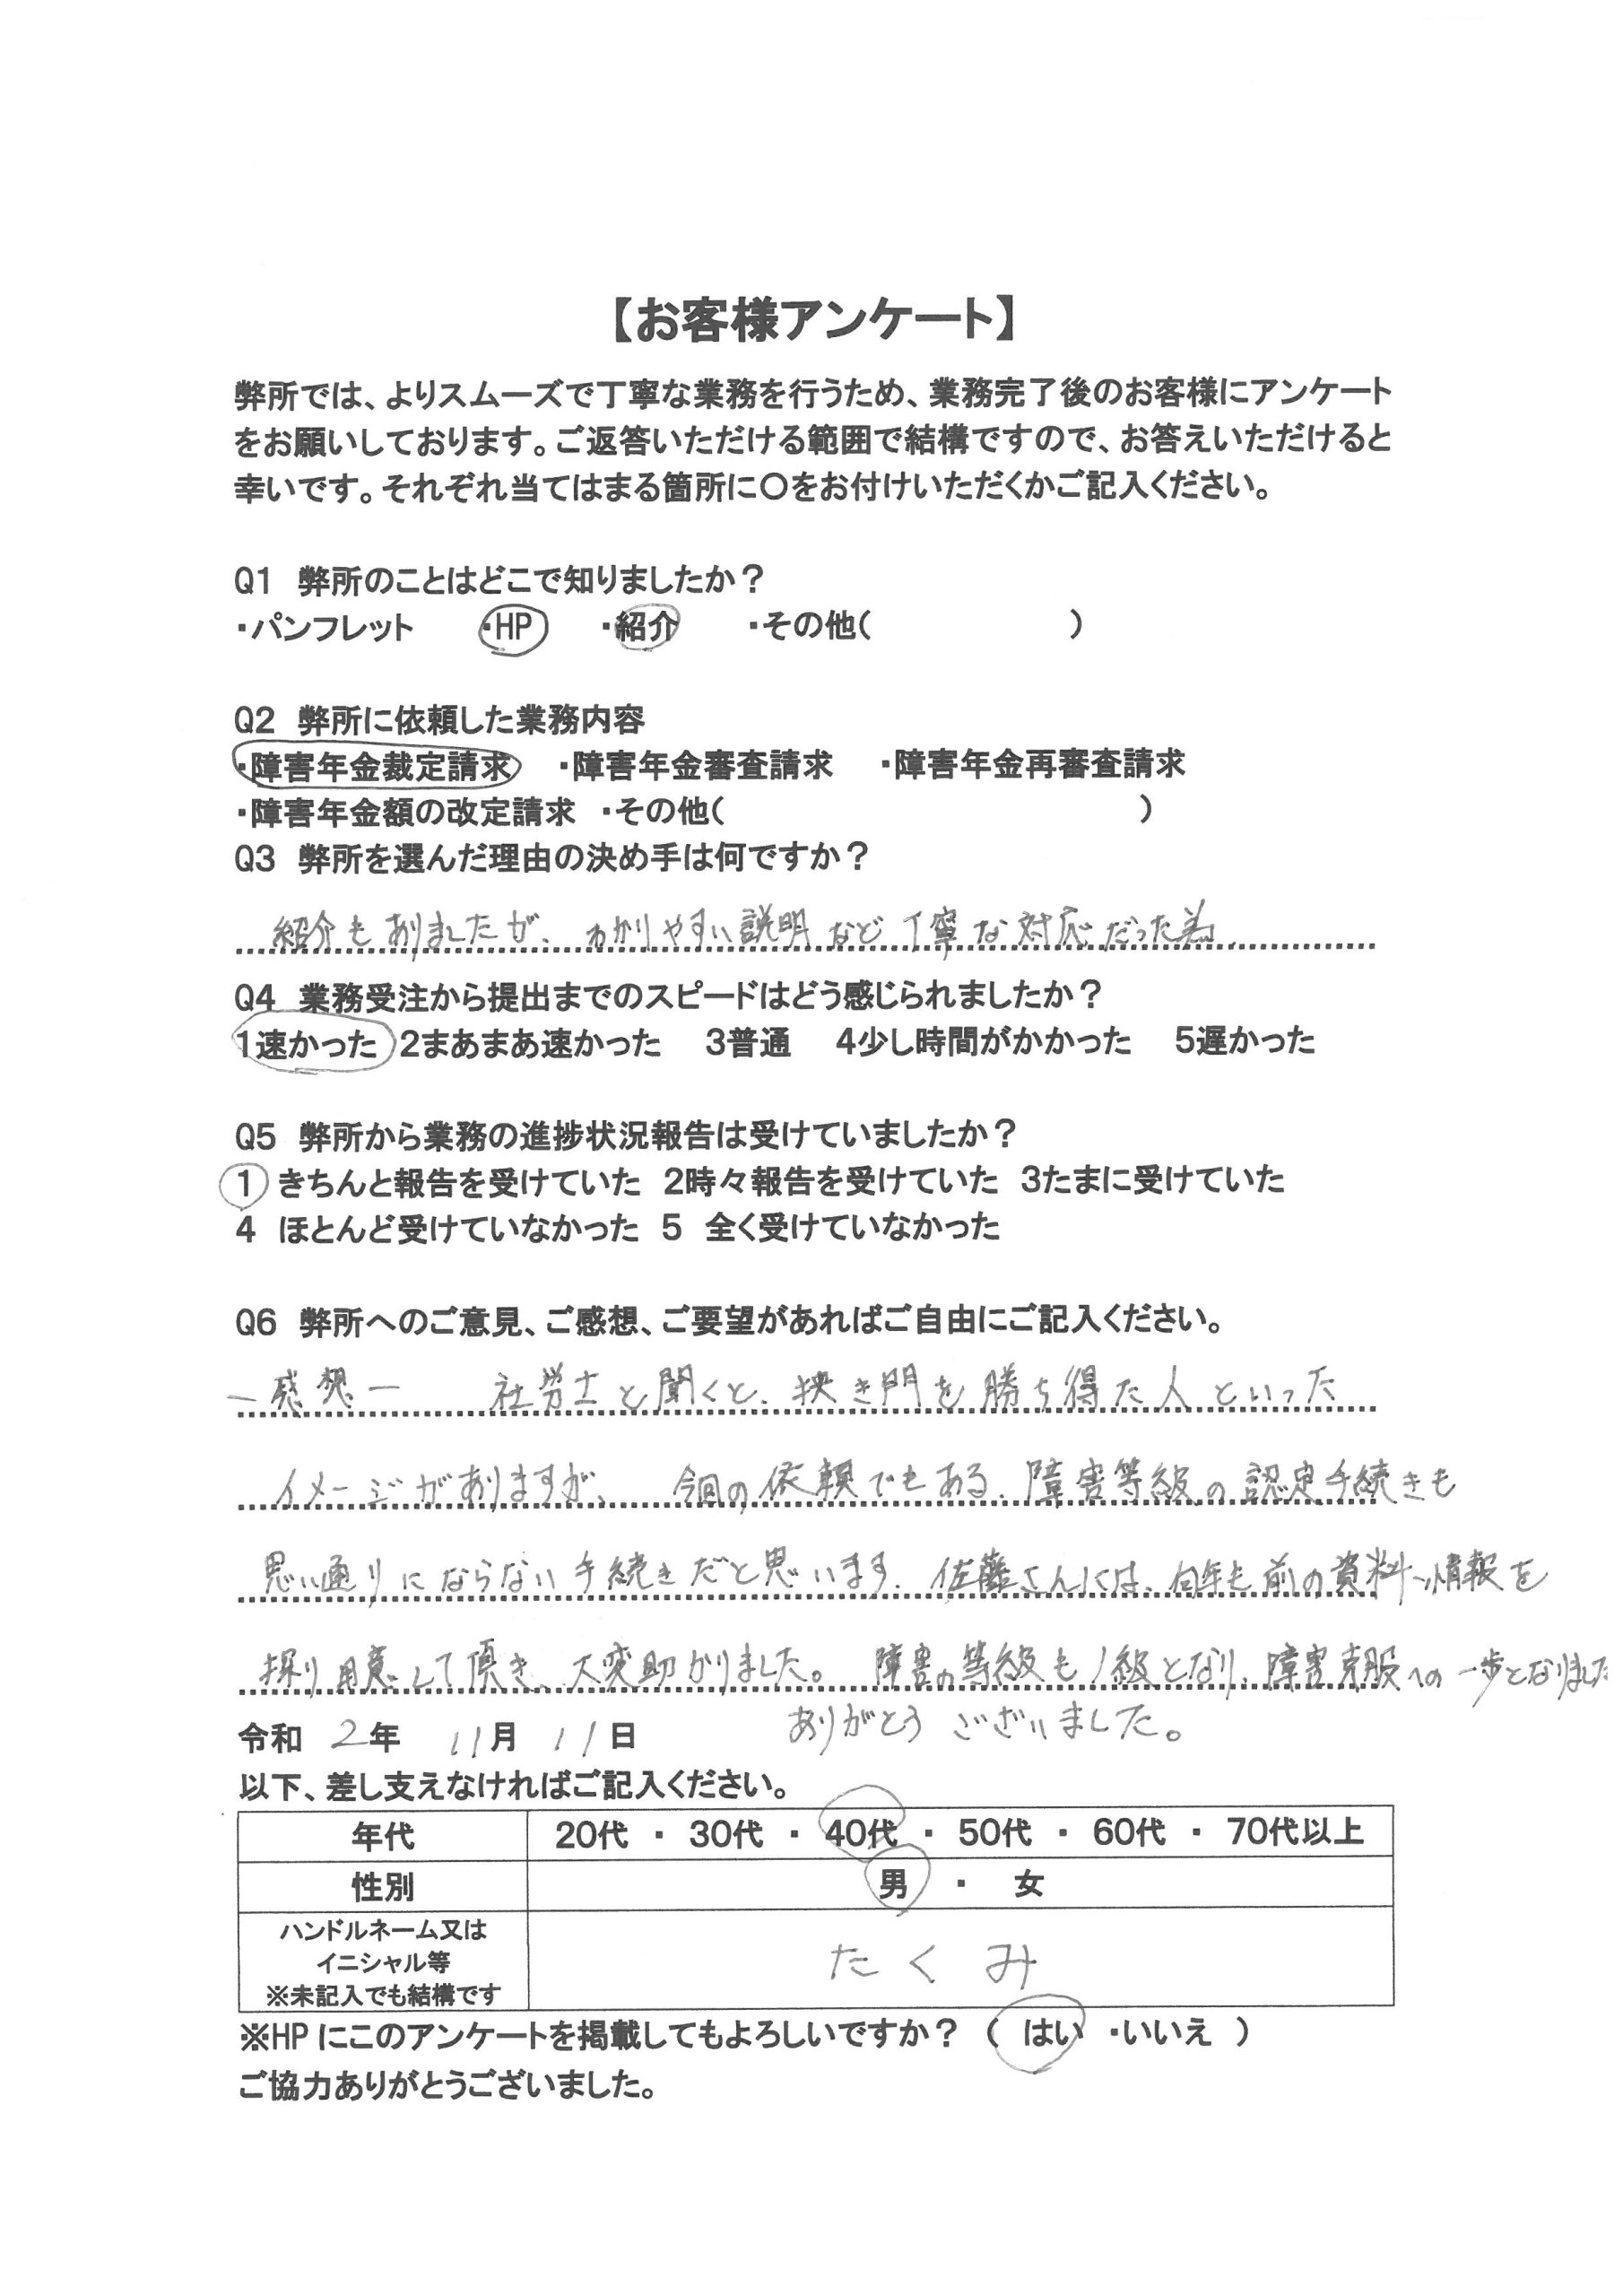 【お客様アンケート】
弊所では、よりスムーズで丁寧な業務を行うため、業務完了後のお客様にアンケート
をお願いしております。ご返答いただける範囲で結構ですので、お答えいただけると
幸いです。それぞれ当てはまる箇所に〇をお付けいただくかご記入ください。
Q1 弊所のことはどこで知りましたか？
・パンフレット ・HP ・紹介 ・その他( )
Q2 弊所に依頼した業務内容
・障害年金裁定請求 ・障害年金審査請求 ・障害年金再審査請求
・障害年金額の改定請求 ・その他( )
Q3 弊所を選んだ理由の決め手は何ですか？
紹介もありましたが、わかりやすい説明など丁寧な対応だった為
Q4 業務受注から提出までのスピードはどう感じられましたか？
1速かった 2まあまあ速かった 3普通 4少し時間がかかった 5遅かった
Q5 弊所から業務の進捗状況報告は受けていましたか？
1 きちんと報告を受けていた 2時々報告を受けていた 3たまに受けていた
4 ほとんど受けていなかった 5 全く受けていなかった
Q6 弊所へのご意見、ご感想、ご要望があればご自由にご記入ください。
ー感想ー 社労士と聞くと、狭き門を勝ち得た人といった
イメージがありますが、 今回の依頼でもある、障害等級の認定手続きも
思い通りにならない手続きだと思います。佐藤さんには、何年も前の資料、情報を
採り用意して頂き、大変助かりました。 障害の等級も1級となり、障害克服への一歩となりました
ありがとうございました。
令和 2年 11月 11日
以下、差し支えなければご記入ください。
年代 20代 ・ 30代 ・ 40代 ・ 50代 ・ 60代 ・ 70代以上
性別 男 ・ 女
ハンドルネーム又は
イニシャル等
※未記入でも結構です
たくみ
※HPにこのアンケートを掲載してもよろしいですか？ ( はい ・いいえ )
ご協力ありがとうございました。